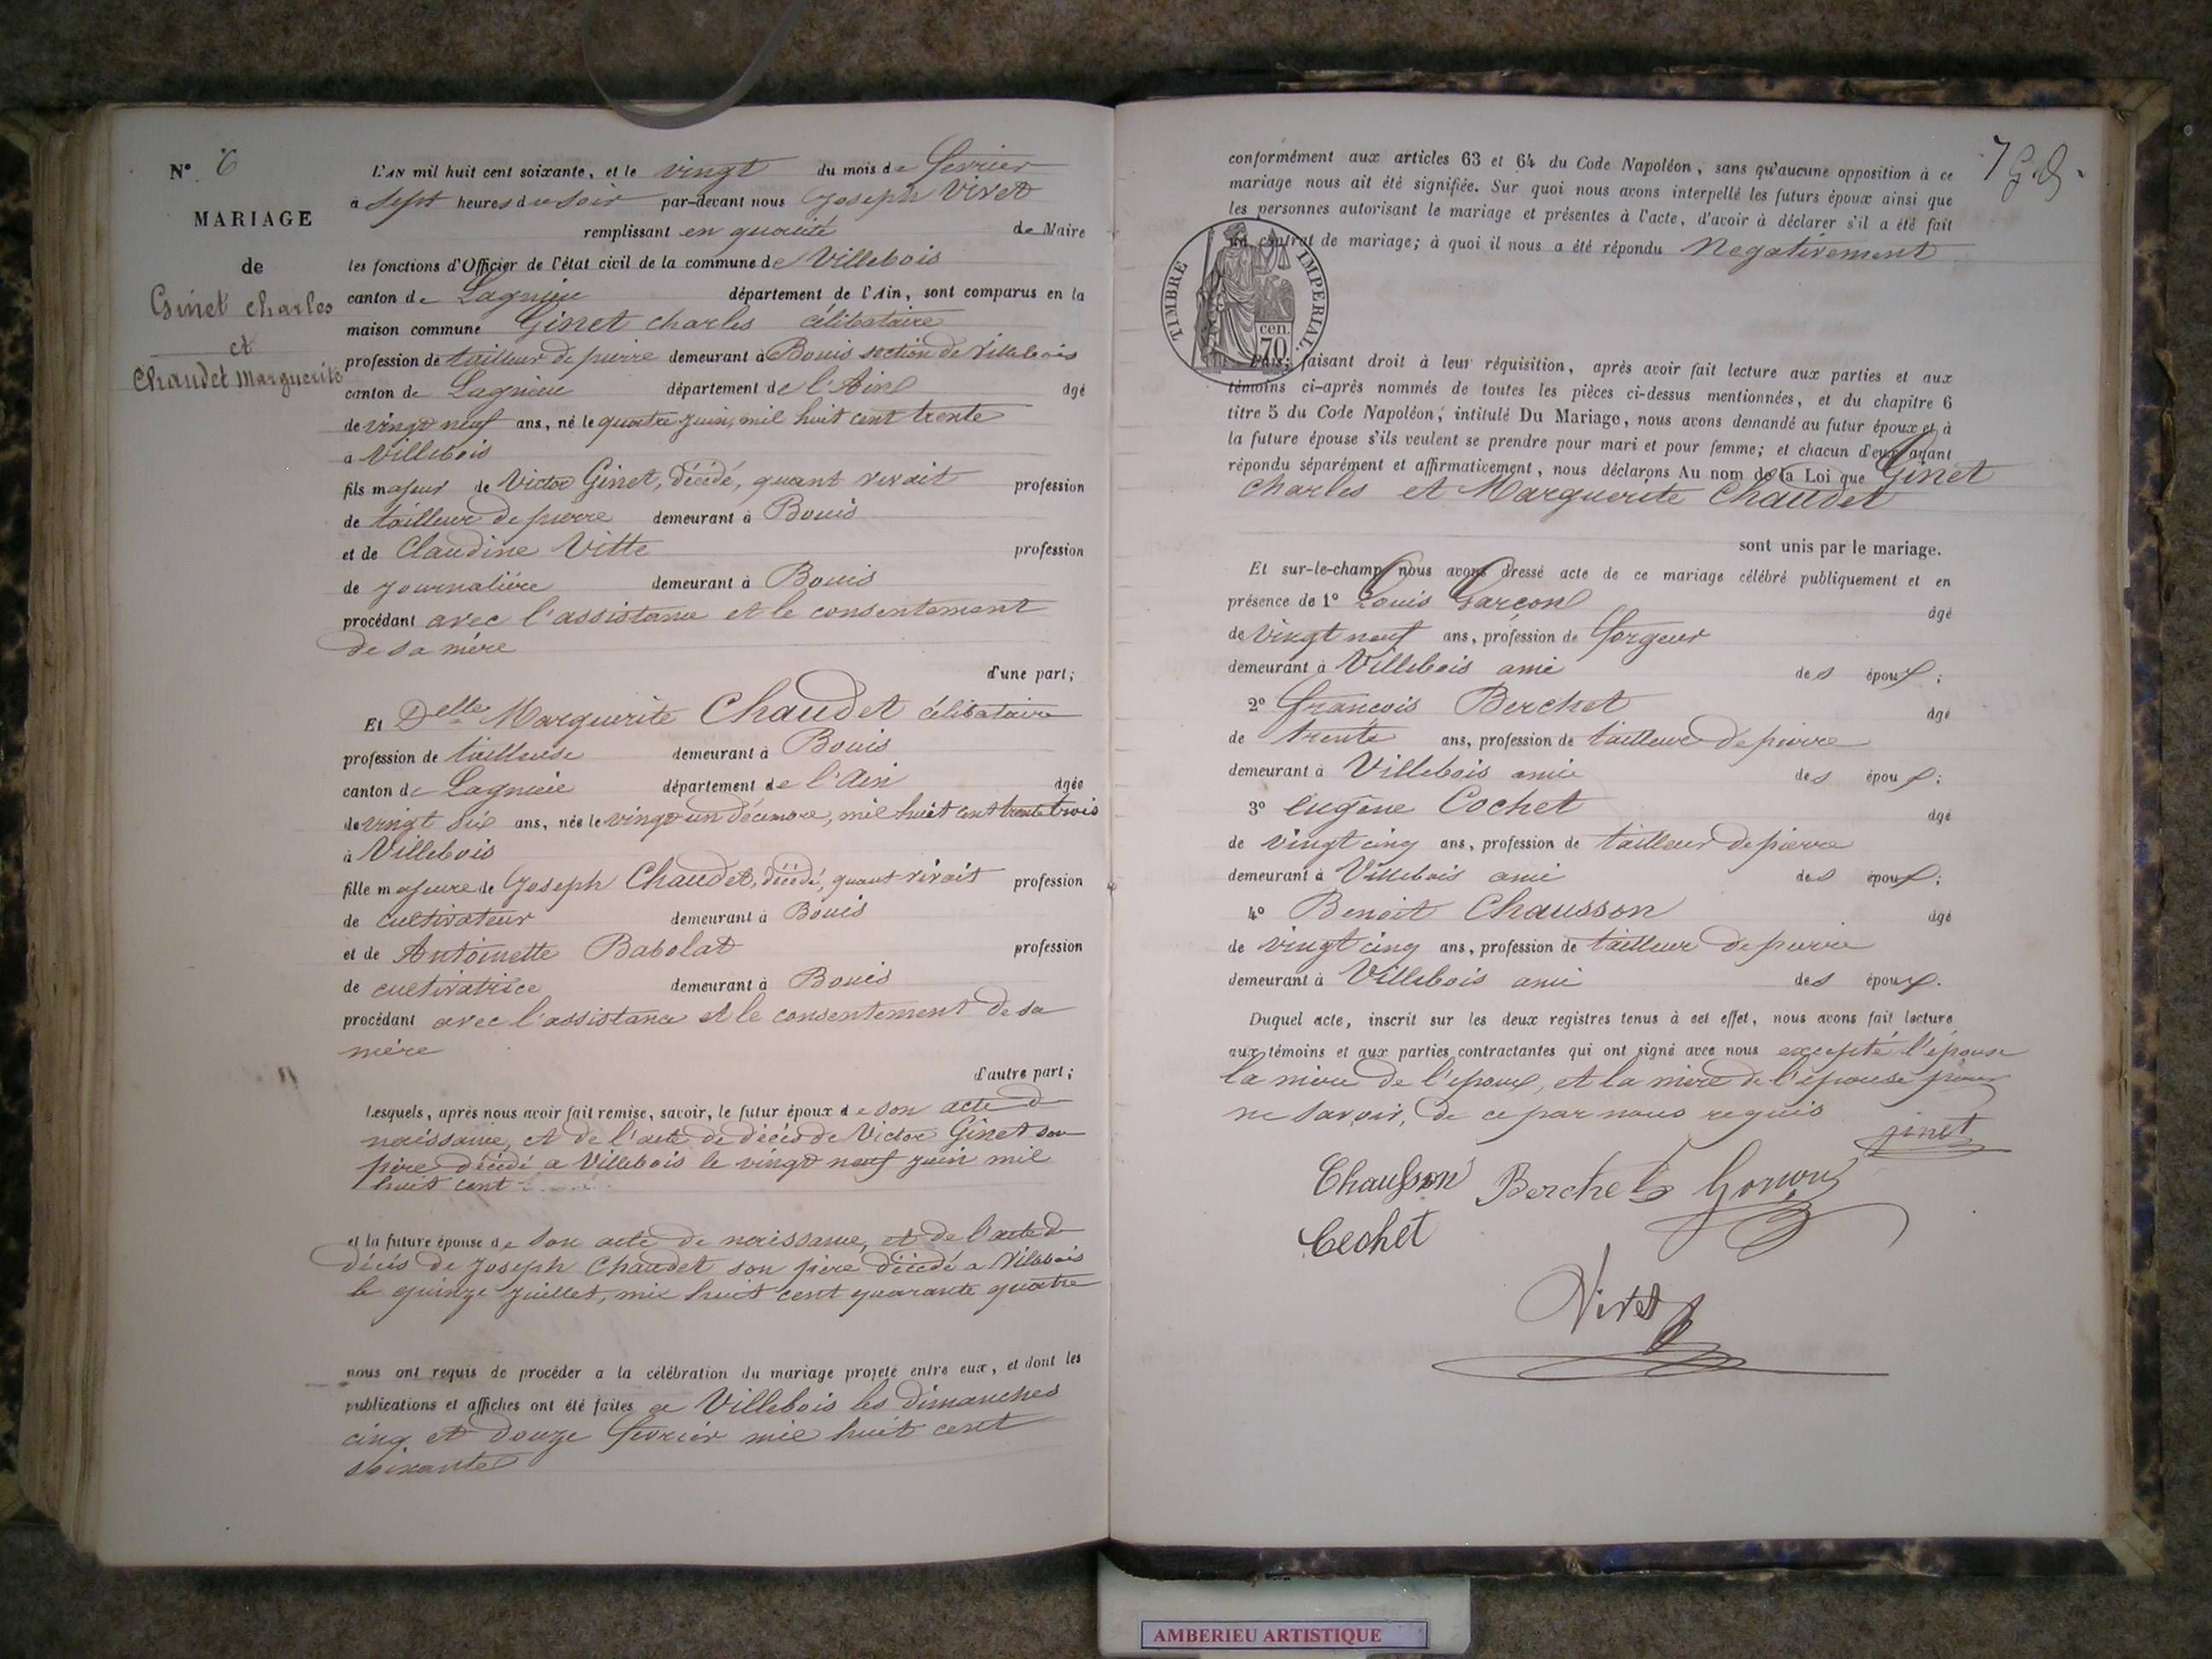 N° 6
MARIAGE
de
Ginet Charles
et
Chaudet Marguerite
L'AN mil huit cent soixante, et le vingt du mois de fevrier
à sept heures du soir par-devant nous Joseph Vivet
remplissant en qualité de Maire
les fonctions d'Officier de l'état civil de la commune de Villebois
canton de Lagnieu département de l'Ain, sont comparus en la
maison commune Ginet Charles célibataire
profession de tailleur de pierre demeurant à Bouis section de Villebois
canton de Lagnieu département de l'Ain âgé
de vingt neuf ans, né le quatre juin, mil huit cent trente
à Villebois
fils majeur de Victor Ginet, décédé, quant vivait profession
de tailleur de pierre demeurant à Bouis
et de Claudine Vitte profession
de journalière demeurant à Bouis
procédant avec l'assistance et le consentement
de sa mère
d'une part;
Et Delle Marguerite Chaudet célibataire
profession de tailleuse demeurant à Bouis
canton de Lagnieu département de l'Ain âgée
de vingt six ans, née le vingt un décembre, mil huit cent trente trois
à Villebois
fille majeure de Joseph Chaudet, décédé, quant vivait profession
de cultivateur demeurant à Bouis
et de Antoinette Babolat profession
de cultivatrice demeurant à Bouis
procédant avec l'assistance et le consentement de sa
mère
d'autre part;
Lesquels, après nous avoir fait remise, savoir, le futur époux de son acte de
naissance, et de l'acte de décès de Victor Ginet son
père décédé a Villebois le vingt neuf juin mil
huit cent
et la future épouse de son acte de naissance, et de l'acte de
décès de Joseph Chaudet son père décédé a Villebois
le quinze juillet, mil huit cent quarante quatre
nous ont requis de procéder a la célébration du mariage projeté entre eux, et dont les
publications et affiches ont été faites a Villebois les dimanches
cinq et douze fevrier mil huit cent
soixante
7
conformément aux articles 63 et 64 du Code Napoléon, sans qu'aucune opposition à ce
mariage nous ait été signifiée. Sur quoi nous avons interpellé les futurs époux ainsi que
les personnes autorisant le mariage et présentes à l'acte, d'avoir à déclarer s'il a été fait
un contrat de mariage; à quoi il nous a été répondu Negativement
TIMBRE IMPERIAL.
cen.
70
Puis; faisant droit à leur réquisition, après avoir fait lecture aux parties et aux
témoins ci-après nommés de toutes les pièces ci-dessus mentionnées, et du chapitre 6
titre 5 du Code Napoléon, intitulé Du Mariage, nous avons demandé au futur époux et à
la future épouse s'ils veulent se prendre pour mari et pour femme; et chacun d'eux ayant
répondu séparément et affirmativement, nous déclarons Au nom de la Loi que Ginet
Charles et Marguerite Chaudet
sont unis par le mariage.
Et sur-le-champ nous avons dressé acte de ce mariage célébré publiquement et en
présence de 1° Louis Garçon âgé
de vingt neuf ans, profession de forgeur
demeurant à Villebois ami des époux;
2° François Berchet âgé
de trente ans, profession de tailleur de pierre
demeurant à Villebois ami des époux;
3° Eugène Cochet âgé
de vingt cinq ans, profession de tailleur de pierre
demeurant à Villebois ami des époux;
4° Benoit Chausson âgé
de vingt cinq ans, profession de tailleur de pierre
demeurant à Villebois ami des époux.
Duquel acte, inscrit sur les deux registres tenus à cet effet, nous avons fait lecture
aux témoins et aux parties contractantes qui ont signé avec nous excepté l'épouse
la mère de l'époux, et la mère de l'épouse pour
ne savoir, de ce par nous requis
ginet
Chausson Berchet
Cochet
Vivet
AMBERIEU ARTISTIQUE